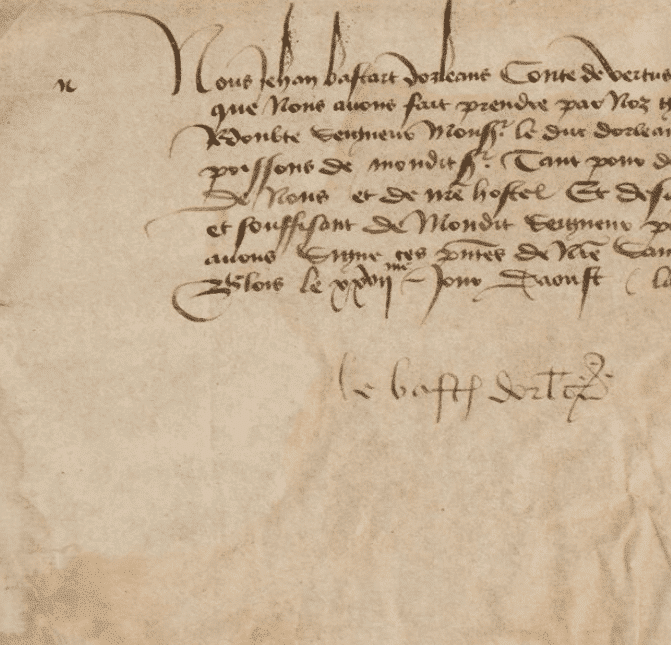 n
Nous Jehan bastart dorleans Conte de vertus
que Nous avons fait prendre par Noz
Redoubte Seigneur Monsr le duc dorlea
poissons de mondit sr Tant pour d
De Nous et de nre hostel Et des
et souffisant De Mondit Seigneur p
avons Signe ces pntes de Nre
Blois le xxviime Jour Daoust
le bast dorl